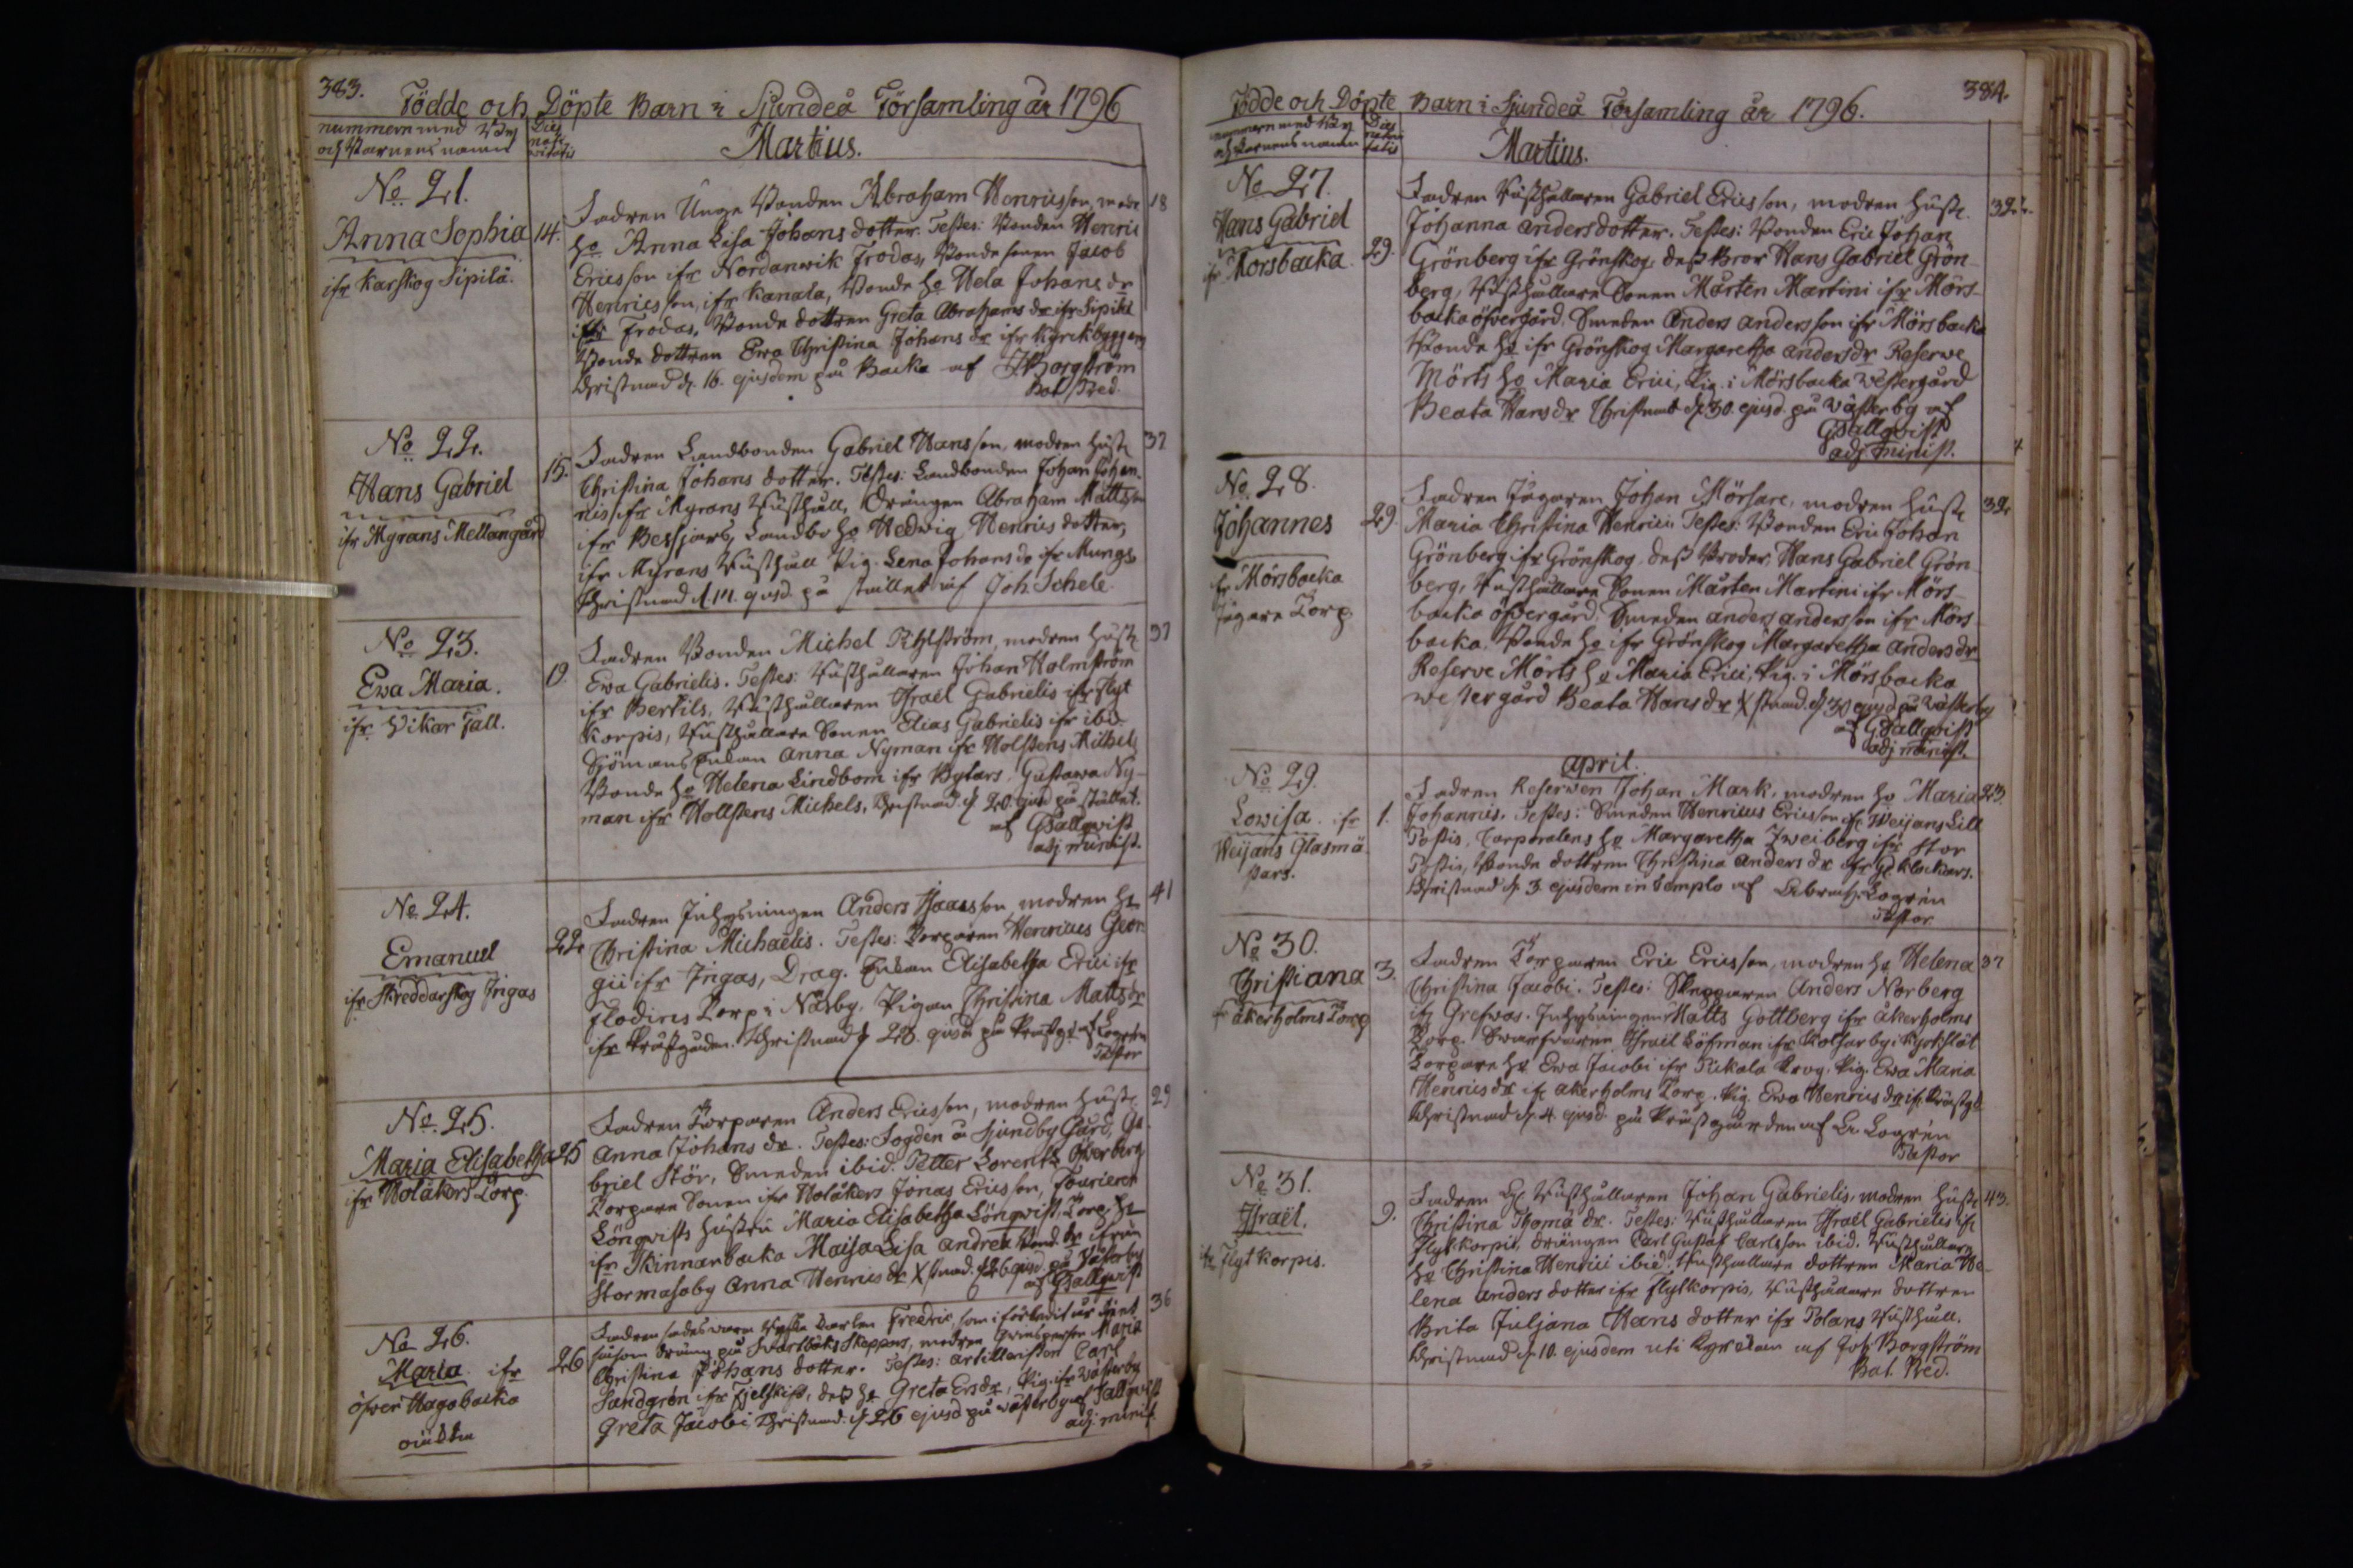 383.
Födde och Döpte Barn i Sjundeå Församling år 1796
nummern med By
och Barnens namn
Dies
nati
vitatis
Martius.
No 21.
Anna Sophia
ifr Karskog Sipilä.
14.
Fadren Unge Bonden Abraham Henricsson, modr
ho Anna Lisa Johans dotter. Testes: Bonden Henric
Ericsson ifr Nordanwik Frodas, Bondesonen Jacob
Henricsson, ifr Kanala, Bonde ho Hela Johans dr
ifr Frodas, Bonde dottren Greta Abrahams dr ifr Sipilä
Bonde dottren Ewa Christina Johans dr ifr Kyrckbyggars
Christnad d. 16. ejusdem på Backa af J. Borgström
Bat. Pred.
18
No 22.
Hans Gabriel
ifr Myrans Mellangård
15.
Fadren Landbonden Gabriel Hansson, modren Hustr
Christina Johans dotter. Testes: Landbonden Johan Johan-
nis ifr Myrans Rusthåll, Drängen Abraham Mattsson
ifr Bessjars, Landbo ho Hedwig Henrics dotter,
ifr Myrans Rusthåll Pig. Lena Johans dr ifr Mungs
Christnad d. 17. ejusd. på stället af Joh. Schele
37
No 23.
Ewa Maria.
ifr Vikar Tall.
19.
Fadren Bonden Michel Pihlström, modren Hustr
Ewa Gabrielis. Testes: Rusthållaren Johan Holmström
ifr Bertils, Rusthållaren Israël Gabrielis ifr Flyt
Korpis, Rusthållare Sonen Elias Gabrielis ifr ibid.
Sjömans Enkan Anna Nyman ifr Holstens Michels
Bonde ho Helena Lindbom ifr Bylars. Gustawa Ny-
man ifr Hollstens Michels, Christnad. d. 20. ejusd på stället.
af G Sallqvist
adj. minist.
37
No 24.
Emanuel
ifr Skreddarskog Ingas
22
Fadren Inhysningen Anders Isaacsson modren ho
Christina Michaëlis. Testes: Torparen Henricus Geor
gii ifr Ingas, Drag. Enkan Elisabetha Erici ifr
Flodins Torp i Näsby, Pigan Christina Mattsdr
ifr Prästgården. Christnad d. 23. ejusd på Prästgd. af Logrén
Pastor
41
No. 25.
Maria Elisabetha
ifr Wolåkers Torp.
25
Fadren Torparen Anders Ericsson, modren Hustr.
Anna Johans dr. Testes: Fogden å Sjundby Gård, Ga
briel Stör, Smeden ibid. Petter Lorentz Österberg
Torpare Sonen ifr Wolåkers Jonas Ericsson, Fourieren
Löngwists Hustru Maria Elisabetha Löngwist, Torp. ho
ifr Skinnarbacka Maisa Lisa Andrea Bond. dr ifrån
Stormasaby Anna Henrics dr Xstnad. d 26 ejusd. på Västerby
af G Sallqvist
29
No 26.
Maria. ifr
öfver Hagabacka
26
Christina Johans dotter. Testes: Artilleristen Carl
Sandgrén ifr Fjelskifs, dess ho Greta Ersdr, Pig. ifr Västerby
Greta Jacobi, Christnad. d 26 ejusd på Västerby af Sallqvist
adj. minist.
36
384.
Födde och Döpte Barn i Sjundeå Församling år 1796.
nummern med By
och Barnens namn
Dies
nativi
tatis
Martius.
No 27.
Hans Gabriel
ifr Mörsbacka.
29.
Fadren Rusthållaren Gabriel Ericsson, modren Hustr.
Johanna Andersdotter. Testes: Bonden Eric Johan
Grönberg ifr Grönskog, dess Bror Hans Gabriel Grön-
berg, Rusthållare Sonen Mårten Martini ifr Mörs-
backa öfvergård, Smeden Anders Andersson ifr Mörsbacka
Bonde ho ifr Grönskog Margaretha Andersdr Reserwe
Mörts ho Maria Erici, Pig. i Mörsbacka Westergård
Beata Hansdr Christnad d. 30. ejusd. på Västerby af
G Sallqvist
adj. minist.
32.
No. 28.
Johannes
ifr Mörsbacka
Jägare Torp
29.
Fadren Jägaren Johan Mörsare, modren Hustr
Maria Christina Henrici Testes: Bonden Eric Johan
Grönberg ifr Grönskog. dess Broder, Hans Gabriel Grön
berg, Rusthållare Sonen Mårten Martini ifr Mörs-
backa öfvergård. Smeden Anders Andersson ifr Mörs
backa, Bonde ho ifr Grönskog Margaretha Andersdr
Reserve Mörts ho Maria Erici, Pig. i Mörsbacka
westergård Beata Hansdr Xstnad. d 30 ejusd på Västerby
af G Sallqvist
adj minist.
32
April.
No 29.
Lowisa. ifr
Weijans Glasmä
stars.
1.
Fadren Reserven Johan Mark, modren ho Maria
Johannis. Testes: Smeden Henricus Ericsson ifr Weijans Lill
Postis, Corporalens ho Margaretha Zweiberg ifr Stor
Postis, Bonde dottren Christina Anders dr ifr Gl. Klockars.
Christnad d. 3. ejusdem in templo af Abrah. Logrén
Pastor
23.
No 30.
Christiana
ifr Åkerholms Torp
3.
Fadren Torparen Eric Ericsson, modren ho Helena
Christina Jacobi. Testes: Skepparen Anders Norberg
ifr Grefwas. Inhysningen Matts Gottberg ifr Åkerholms
Torp. Swarfvaren Israël Löfman ifr Kolsarby i Kyrkslät
Torpare ho Ewa Jacobi ifr Pickala Krog, Pig. Ewa Maria
Henricsdr ifr Åkerholms Torp. Pig. Ewa Henrics dr ifr Prästgd.
Christnad d. 4. ejusd. på Prästgården af A. Logrén
Pastor
37
No 31.
Israël.
ifr Flytkorpis.
9.
Fadren Gl. Rusthållaren Johan Gabrielis, modren Hustr
Christina Thomæ dr. Testes: Rusthållaren Israël Gabrielis ifr
Flytkorpis, Drängen Carl Gustaf Carlsson ibid. Rusthållare
ho Christina Henrici ibid. Rusthållare dottren Maria He-
lena Anders dotter ifr Flytkorpis, Rusthållare dottren
Brita Juljana Hans dotter ifr Polans Rusthåll.
Christnad d. 10. ejusdem uti Kyrckan af Joh. Borgström
Bat. Pred.
43.